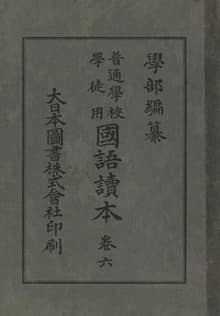 學部編纂
普通學校
學徒用
國語讀本 卷六
大日本圖書株式會社印刷